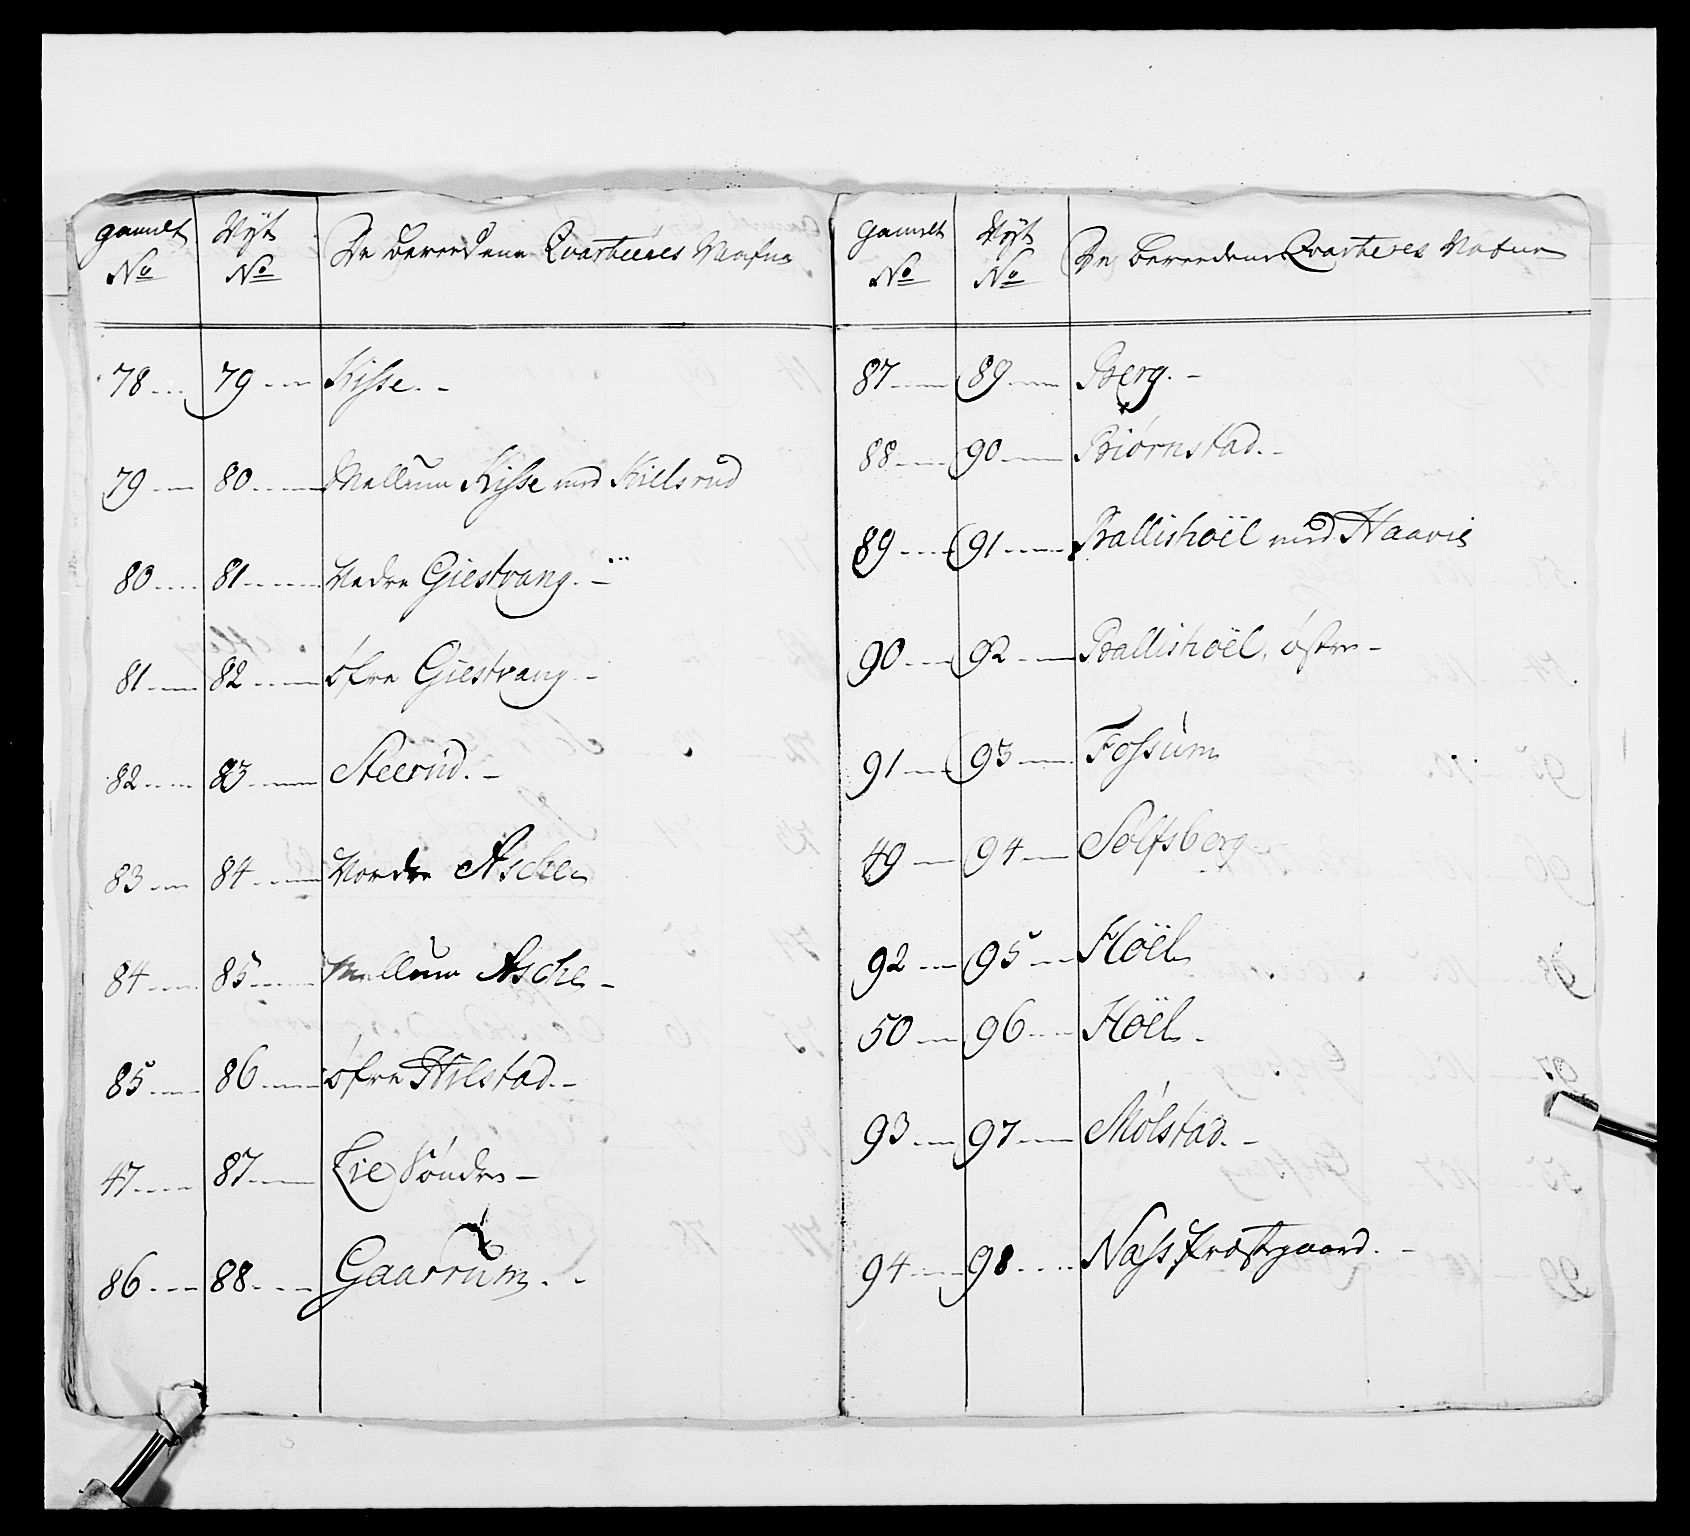 gamelt No | Nÿt No | De bereedene Qvarterers Nafne
78 | 79 | Kisse.
79 | 80 | Mellum Kisse med Killsrud
80 | 81 | Nedre Giestvang.
81 | 82 | øfre Giestvang
82 | 83 | Steerud.
83 | 84 | Nordre Aschen
84 | 85 | Mellum Asche
85 | 86 | øfre Hilstad.
47 | 87 | Lie Søndre
86 | 88 | Gaarrum.
gamelt No | Nÿt No | De bereedene Qvarteres Nafne
87 | 89 | Berg.
88 | 90 | Biørnstad.
89 | 91 | Ballishøël med Haavie
90 | 92 | Ballishøël, østre
91 | 93 | Fossum
49 | 94 | Solfsberg
92 | 95 | Høël
50 | 96 | Høël
93 | 97 | Mølstad.
94 | 98 | Næss Præstegaard.